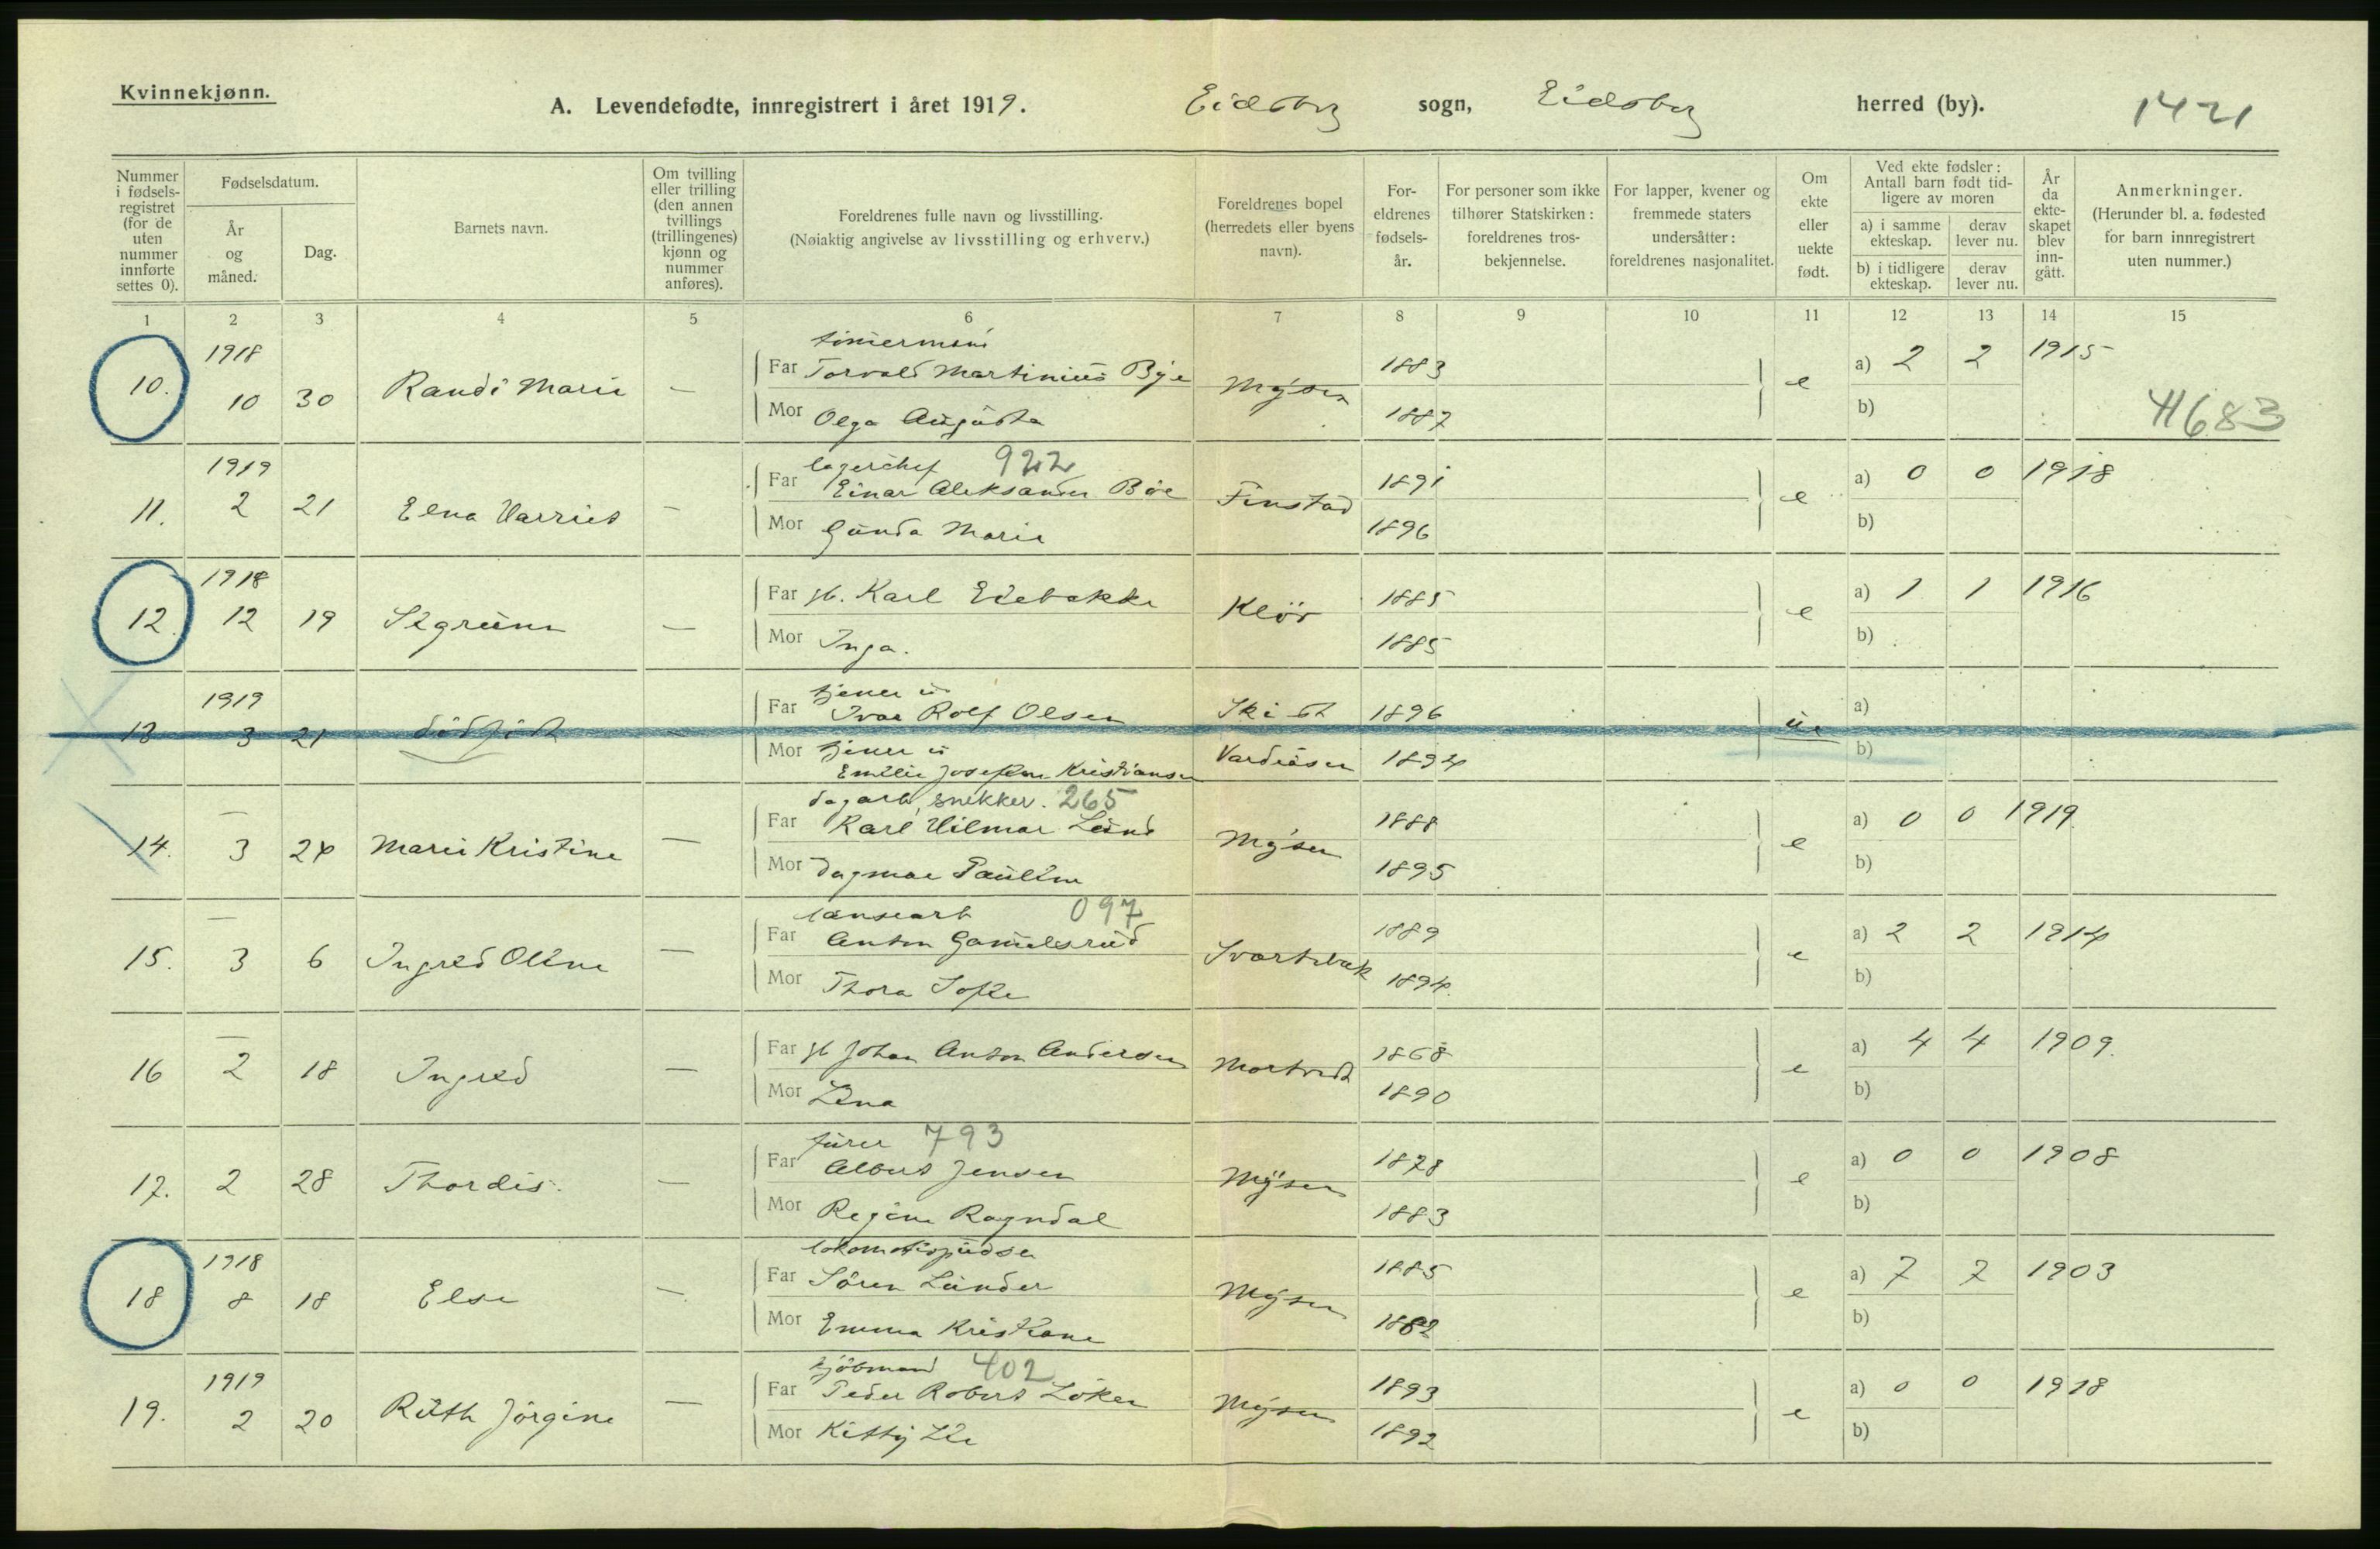 Kvinnekjønn.
A. Levendefødte, innregistrert i året 1919. Eidsberg sogn, Eidsberg herred (by). 1421
Nummer i fødselsregistret (for de uten nummer innførte settes 0).
Fødselsdatum.
År og måned.
Dag.
Barnets navn.
Om tvilling eller trilling (den annen tvillings (trillingenes) kjønn og nummer anføres).
Foreldrenes fulle navn og livsstilling.
(Nøiaktig angivelse av livsstilling og erhverv.)
Foreldrenes bopel (herredets eller byens navn).
Foreldrenes fødselsår.
For personer som ikke tilhører Statskirken: foreldrenes trosbekjennelse.
For lapper, kvener og fremmede staters undersåtter: foreldrenes nasjonalitet.
Om ekte eller uekte født.
Ved ekte fødsler: Antall barn født tidligere av moren
a) i samme ekteskap. derav lever nu.
b) i tidligere ekteskap. derav lever nu.
År da ekteskapet blev inngått.
Anmerkninger.
(Herunder bl. a. fødested for barn innregistrert uten nummer.)
1 2 3 4 5 6 7 8 9 10 11 12 13 14 15
1918 tømermann
10. 10 30 Randi Marie — Far Torvald Martinius Bye Mysen 1883 e a) 2 2 1915
Mor Olga Augusta 1887 b) 4683
1919 lagerchef 922
11. 2 21 Elna Harriet — Far Einar Aleksander Bøe Finstad 1891 e a) 0 0 1918
Mor Gunda Marie 1896 b)
1918
12. 12 19 Sigrunn — Far gb. Karl Edebakke Kløv 1885 e a) 1 1 1916
Mor Inga. 1885 b)
1919 tjener u
13 3 21 dødfødt — Far Ivar Rolf Olsen Ski st 1896 u. a)
Mor tjener u
Emilie Josefine Kristiansen Vardeåsen 1894 b)
dagarb, snekker. 265
14. — 3 24 Marie Kristine — Far Karl Hilmar Lund Mysen 1888 e a) 0 0 1919
Mor Dagmar Pauline 1895 b)
lænsearb 097
15. — 3 6 Ingrid Oline — Far Anton Gamelsrud Svartebæk 1889 e a) 2 2 1914
Mor Thora Sofie 1894. b)
16 — 2 18 Ingrid — Far gb Johan Anton Andersen Mortvedt 1868 e a) 4 4 1909.
Mor Lina 1890 b)
fører 793
17. 2 28 Thordis. — Far Albert Jensen Mysen 1878 e a) 0 0 1908
Mor Regine Ragndal 1883 b)
1918 lokomotivpudser
18 8 18 Else — Far Søren Lunder Mysen 1885 e a) 7 7 1903
Mor Emma Kristiane 1882 b)
1919 kjøbmand 402
19. 2 20 Ruth Jørgine — Far Peder Robert Løken Mysen 1893 e a) 0 0 1918
Mor Kitty Lie 1892 b)